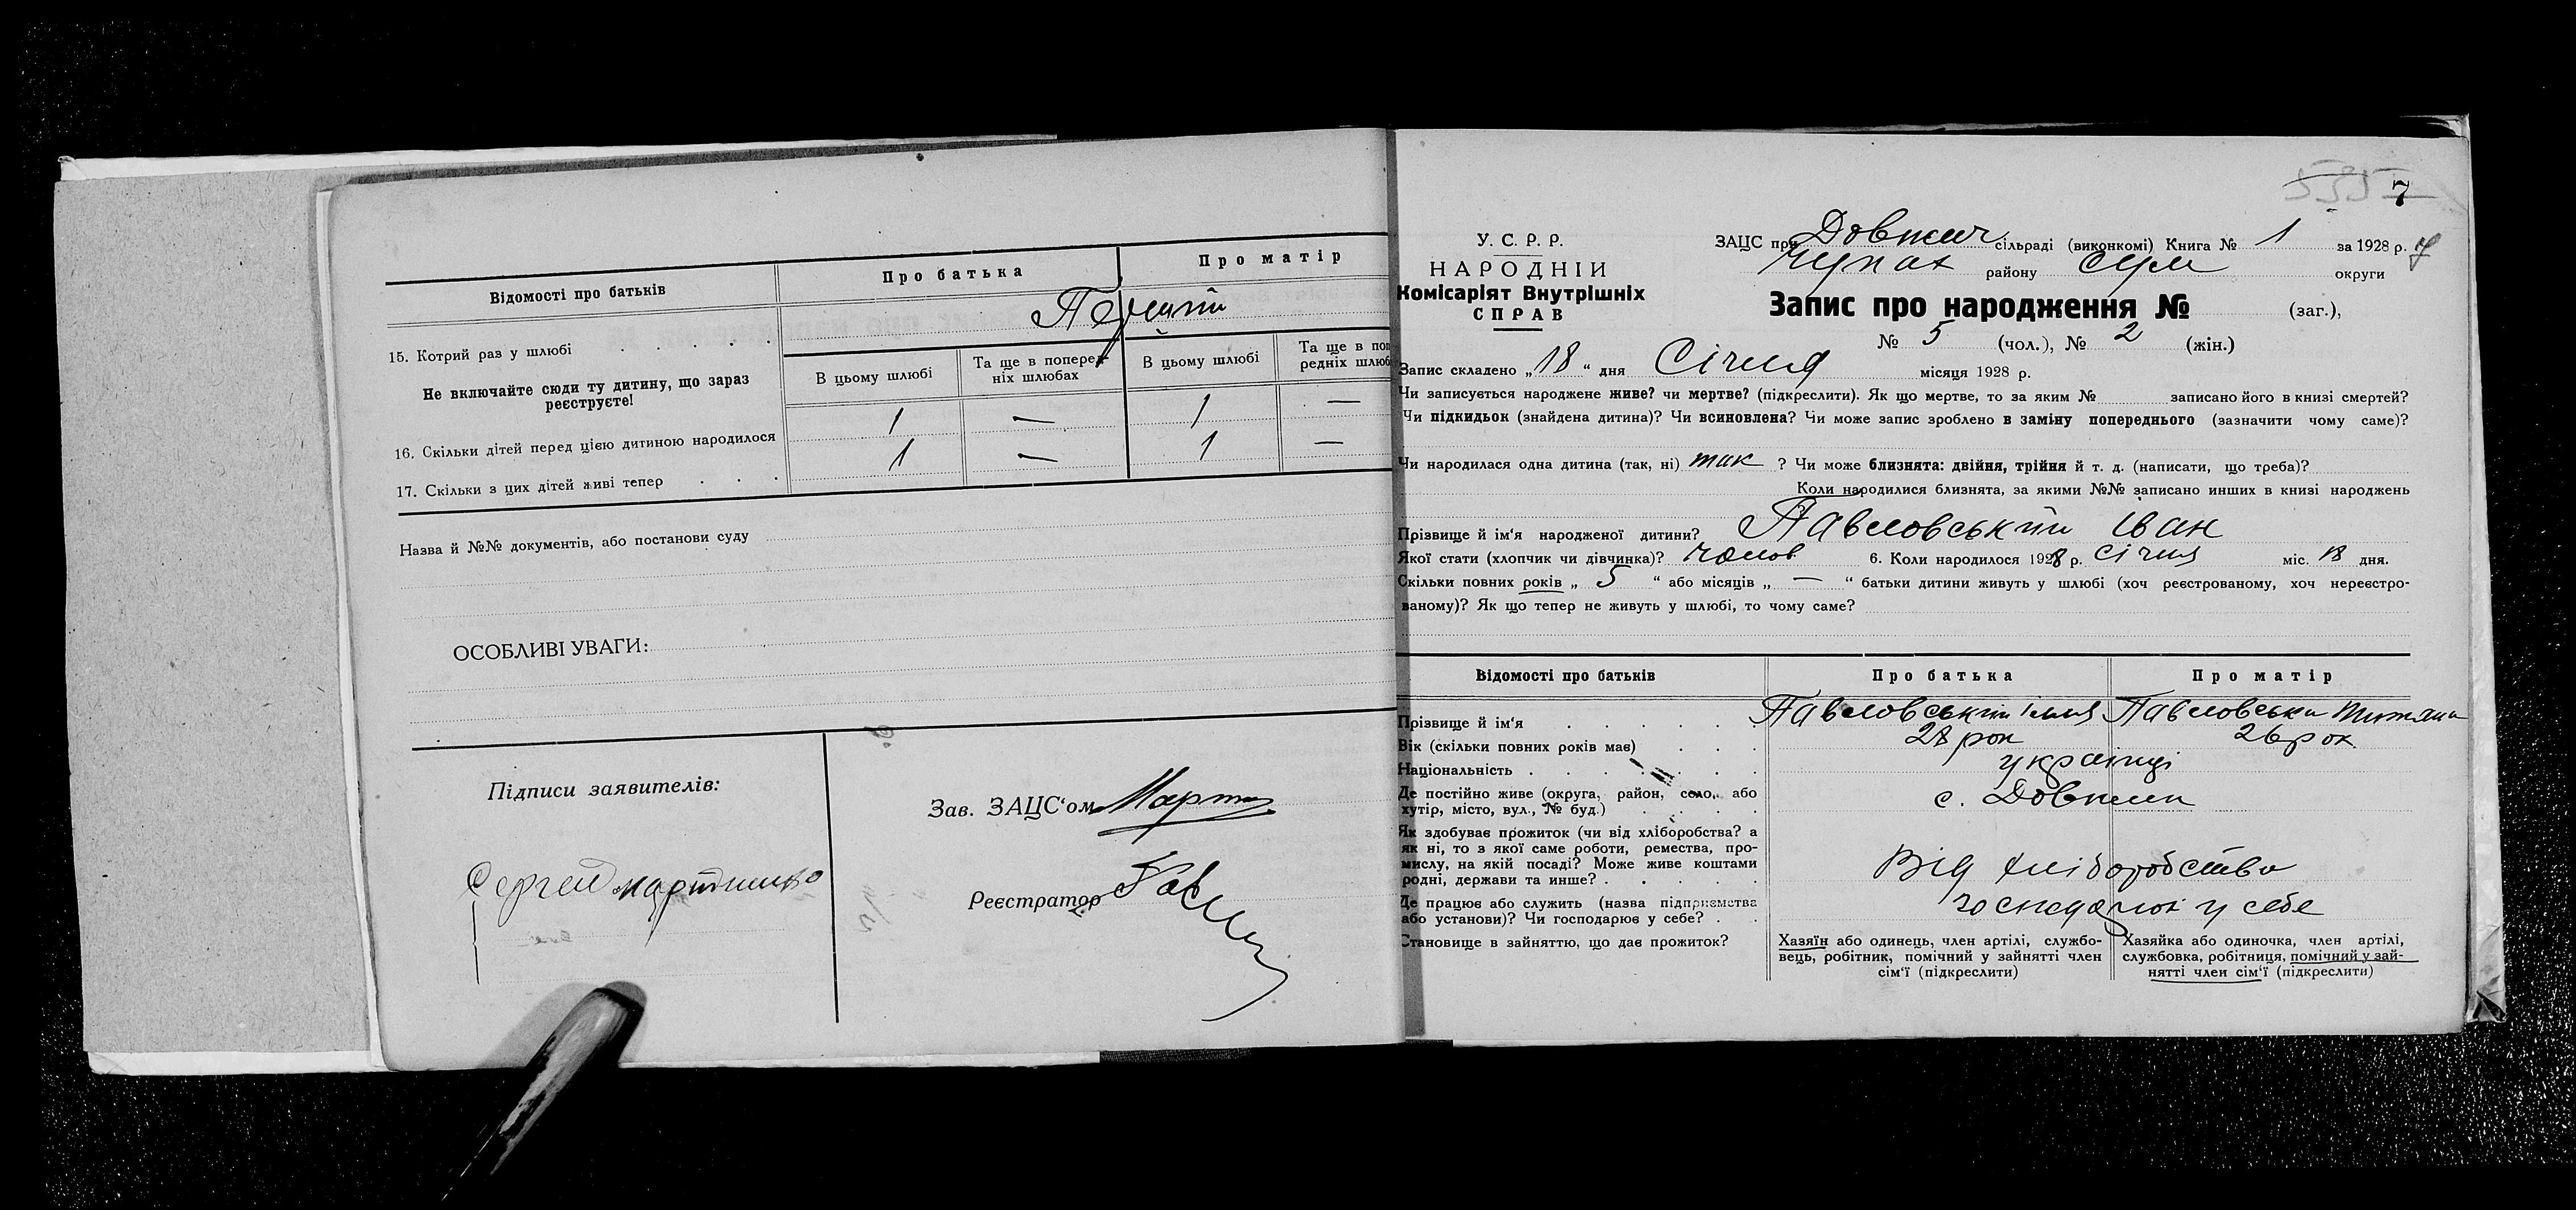 Відомості про батьків
Про батька
Про матір
15. Котрий раз у шлюбі
Перший
Не включайте сюди ту дитину, що зараз реєструєте!
В цьому шлюбі
Та ще в поперед-
ніх шлюбах
В цьому шлюбі
Та ще в по
редніх шлюб
16. Скільки дітей перед цією дитиною народилося 1 — 1 —
17. Скільки з цих дітей живі тепер 1 — 1 —
Назва й №№ документів, або постанови суду
ОСОБЛИВІ УВАГИ:
Підписи заявителів:
Сергей
Зав. ЗАЦС‘ом Март
Реєстратор
7
У. С. Р. Р.
НАРОДНІЙ
Комісаріят Внутрішніх
СПРАВ
ЗАЦС при Довжич сільраді (виконкомі) Книга № 1 за 1928 р.
району Сум округи
Запис про народження № (заг.),
№ 5 (чол.), № 2 (жін.)
Запис складено „18“ дня Січня місяця 1928 р.
Чи записується народжене живе? чи мертве? (підкреслити). Як що мертве, то за яким № записано його в книзі смертей?
Чи підкидьок (знайдена дитина)? Чи всиновлена? Чи може запис зроблено в заміну попереднього (зазначити чому саме)?
Чи народилася одна дитина (так, ні) так ? Чи може близнята: двійня, трійня й т. д. (написати, що треба)?
Коли народилися близнята, за якими №№ записано инших в книзі народжень
Прізвище й ім‘я народженої дитини? Павловський Іван
Якої стати (хлопчик чи дівчинка)? чолов 6. Коли народилося 1928 р. Січня міс. 18 дня.
Скільки повних років „ 5 “ або місяців „ — “ батьки дитини живуть у шлюбі (хоч реєстрованому, хоч нереєстро-
ваному)? Як що тепер не живуть у шлюбі, то чому саме?
Відомості про батьків
Про батька
Про матір
Прізвище й ім‘я Павловський Ілля Павловська Титяна
Вік (скільки повних років має) 28 рок 26 рок
Національність українці
Де постійно живе (округа, район, село, або
хутір, місто, вул., № буд.) с. Довжик
Як здобуває прожиток (чи від хліборобства? а
як ні, то з якої саме роботи, ремества, про-
мислу, на якій посаді? Може живе коштами
родні, держави та инше? Від хліборобства
Де працює або служить (назва підприємства
або установи)? Чи господарює у себе? у себе
Становище в зайняттю, що дає прожиток?
Хазяїн або одинець, член артілі, службо-
вець, робітник, помічний у зайнятті член
сім‘ї (підкреслити)
Хазяйка або одиночка, член артілі,
службовка, робітниця, помічний у зай-
нятті член сім‘ї (підкреслити)